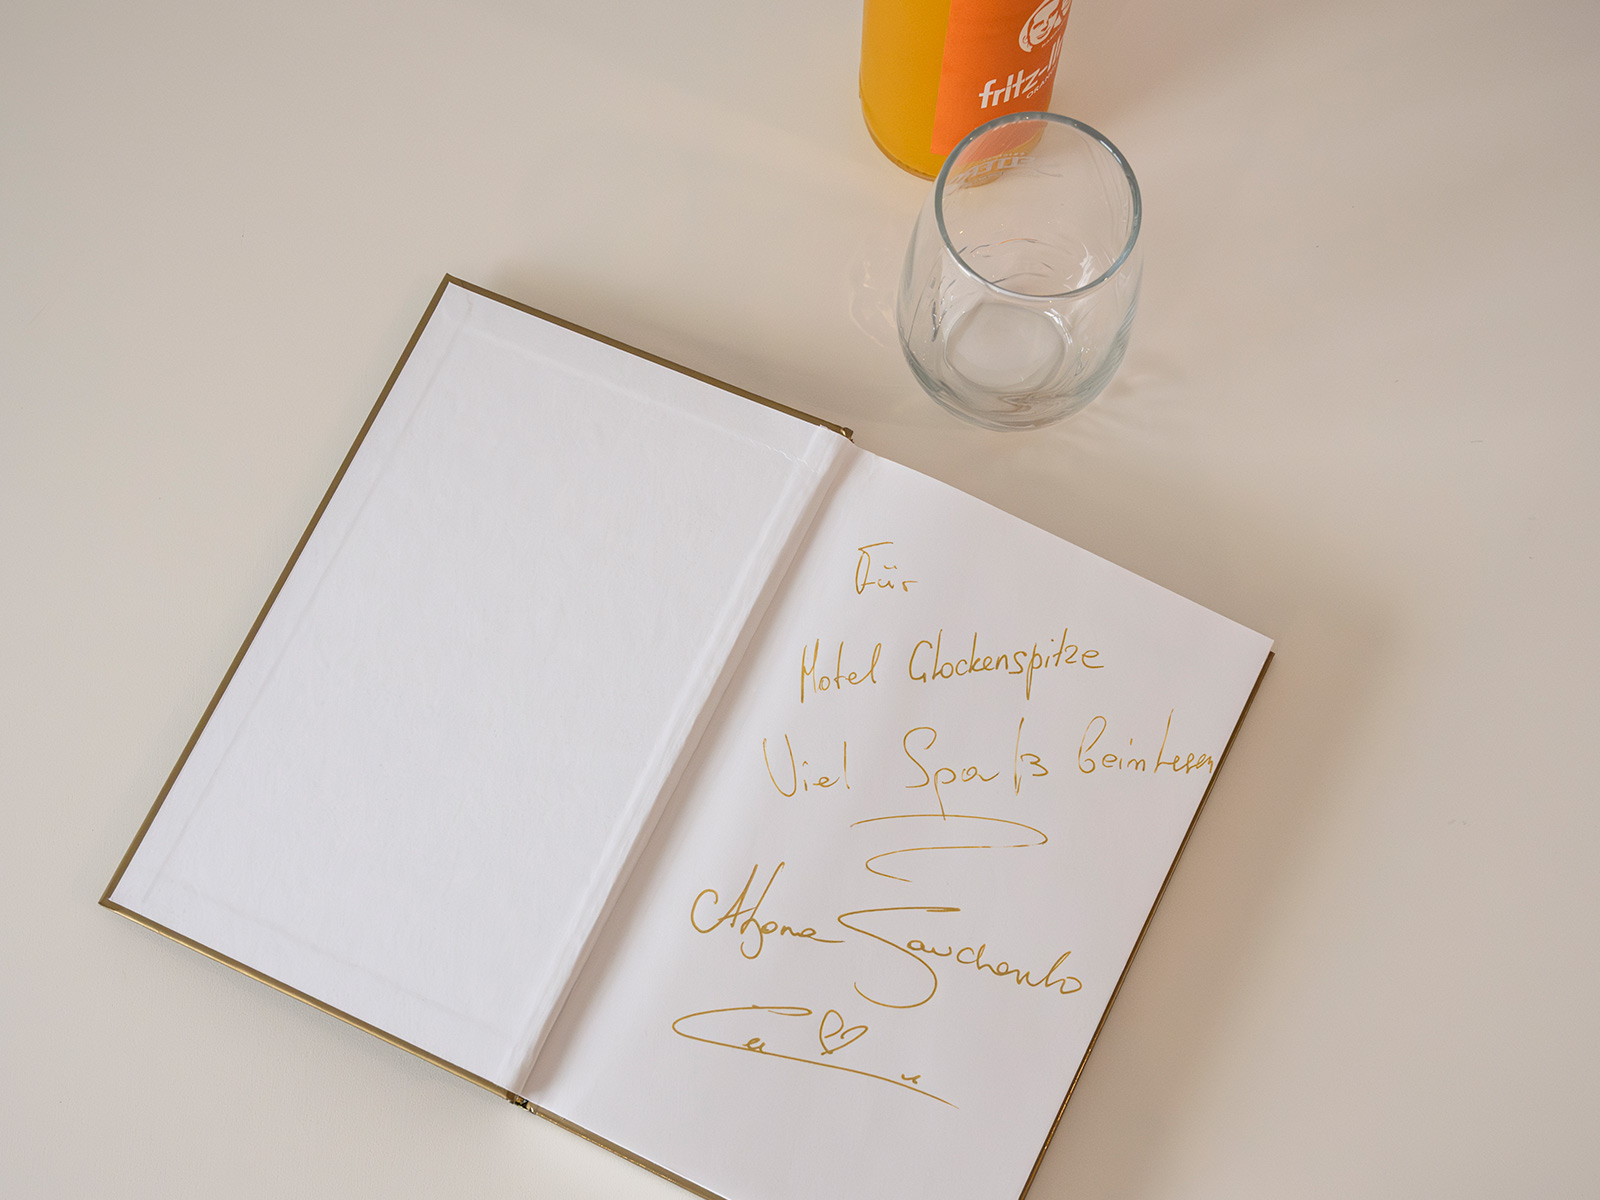 fritz-li
Für
Hotel Glockenspitze
Viel Spaß beim Lesen
Savchenko